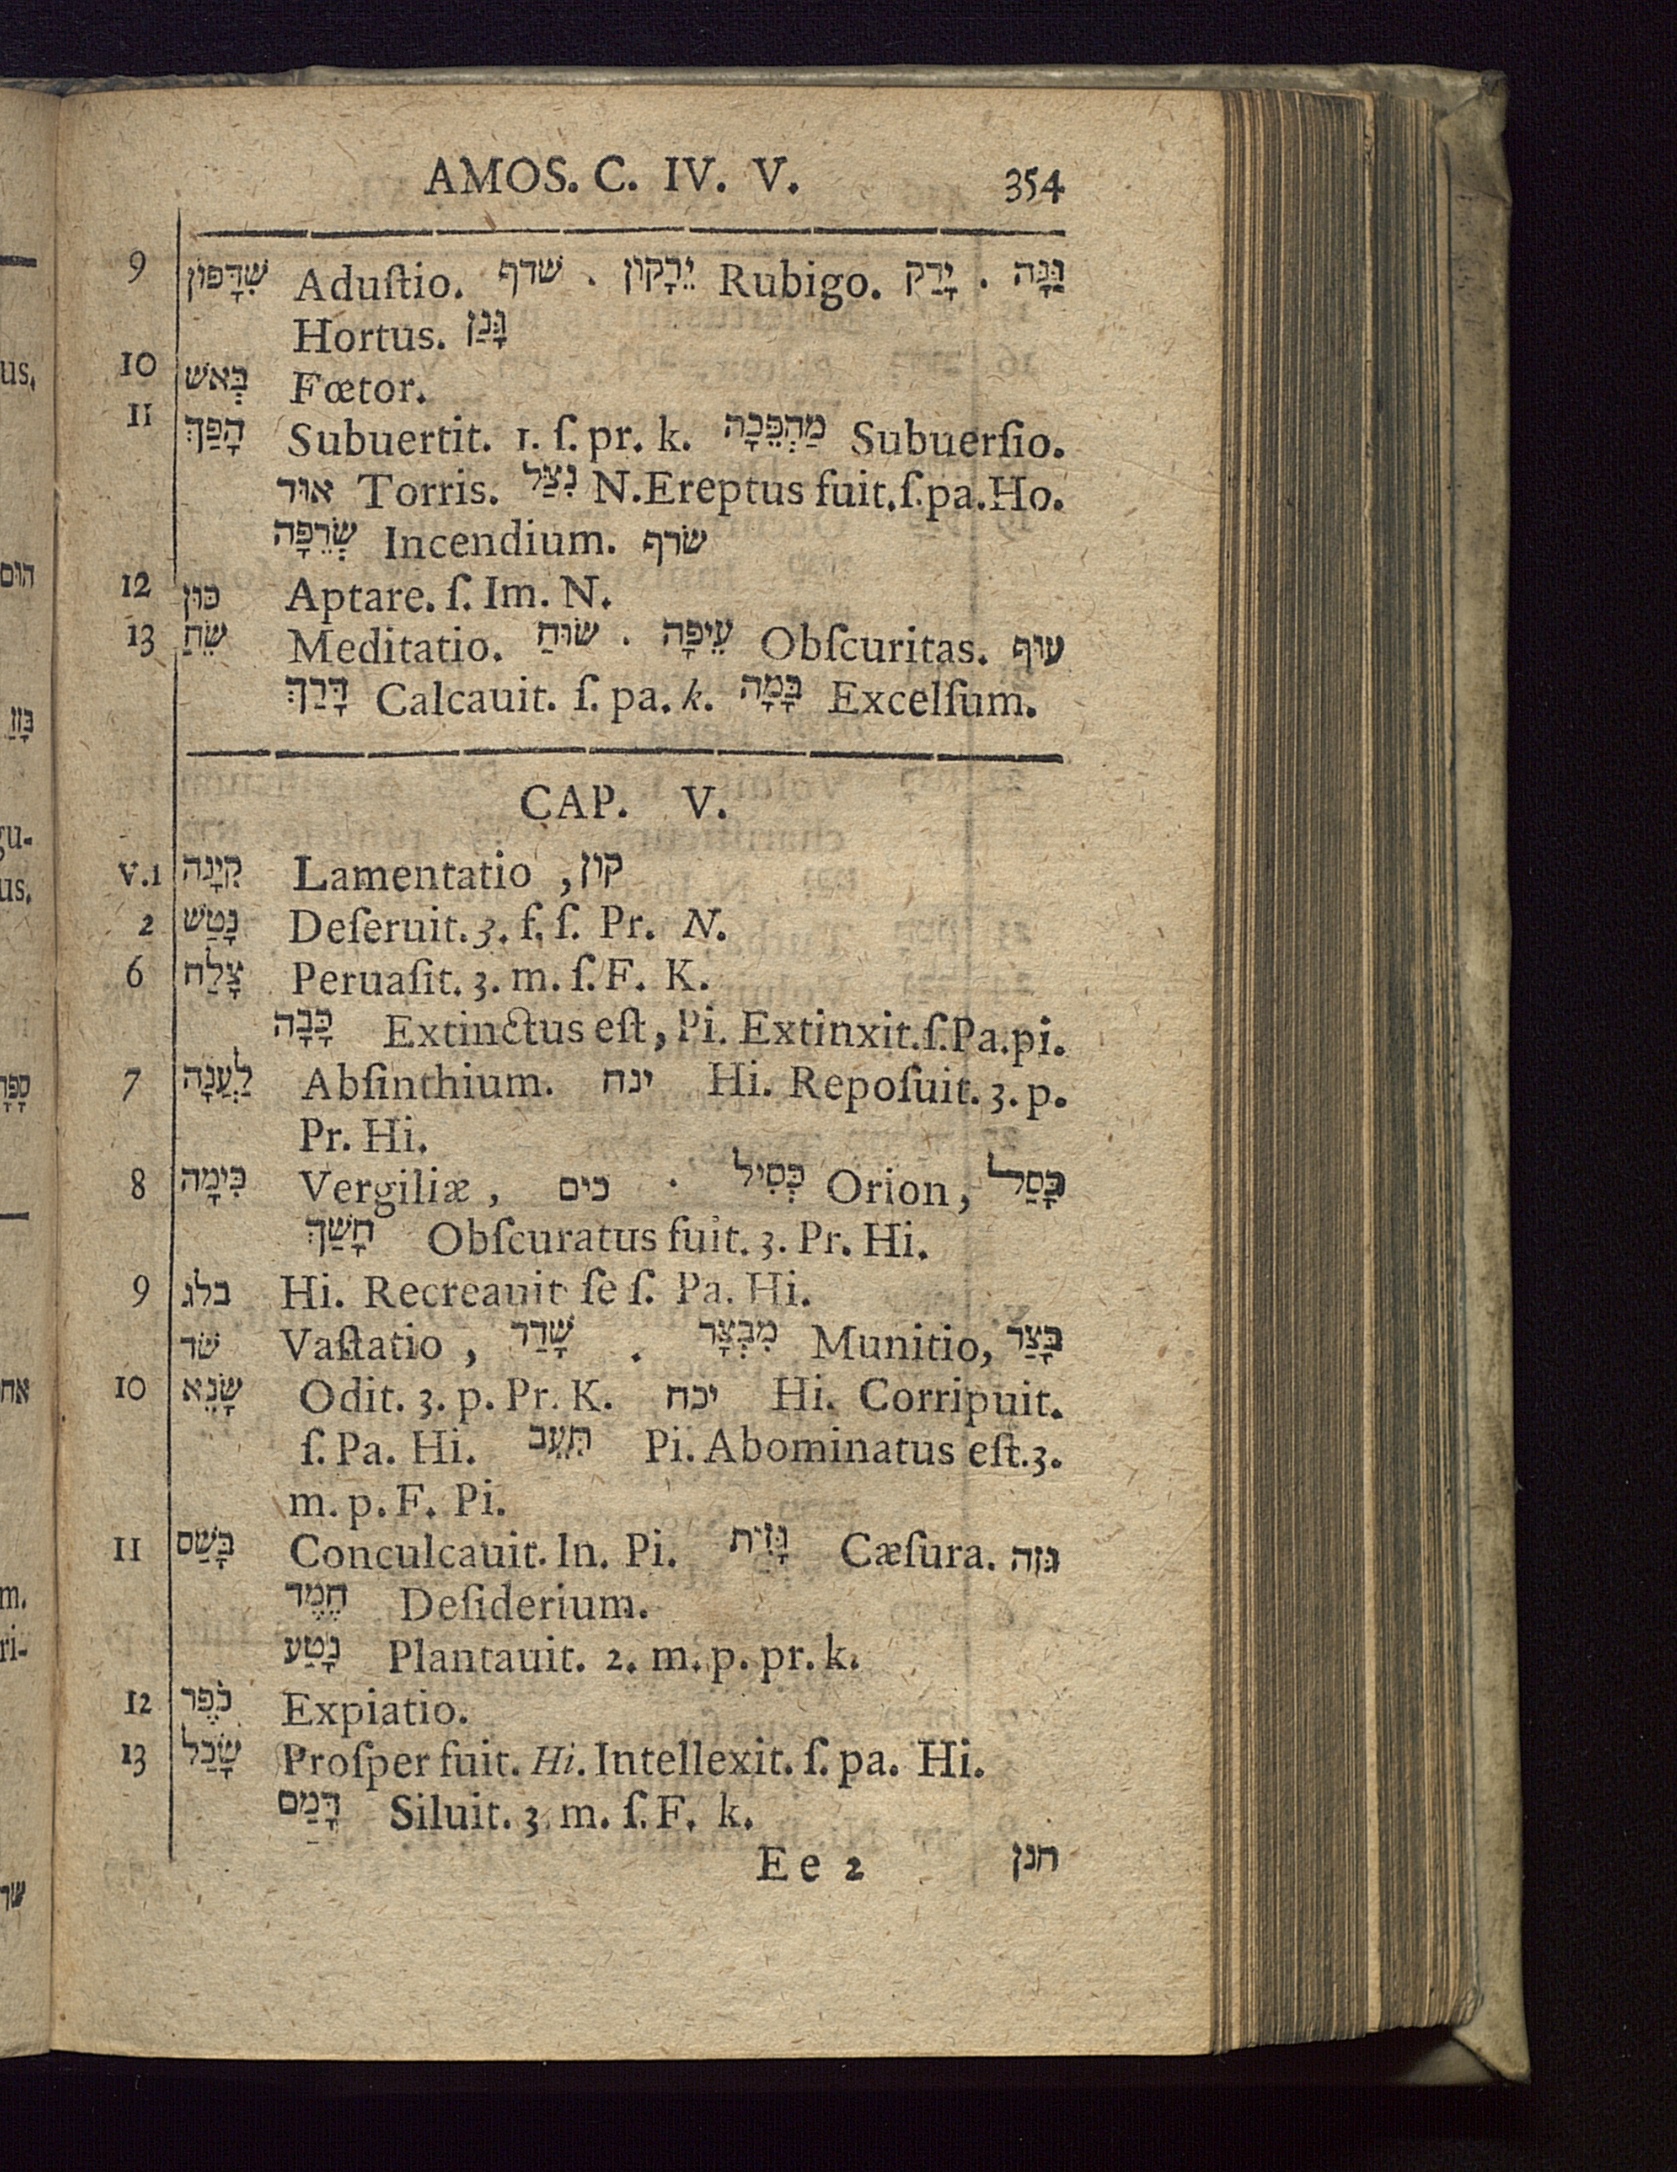 AMOS. C. IV. V. 354
9 שִׁדָּפוֹן Aduſtio. שדף . יֵרָקוֹן Rubigo. יָרַק . גַּנָּה
Hortus. גָּנַן
10 בְּאֹשׁ Fœtor.
11 הָפַךְ Subuertit. 1. ſ. pr. k. מַהְפֵּכָה Subuerſio.
אוּד Torris. נִצַּל N. Ereptus fuit. ſ. pa. Ho.
שְׂרֵפָה Incendium. שׂרף
12 כּוּן Aptare. ſ. Im. N.
13 שֵׂחַ Meditatio. שׂוּחַ . עֵיפָה Obſcuritas. עוּף
דָּרַךְ Calcauit. ſ. pa. k. בָּמָה Excelſum.
CAP. V.
V.1 קִינָה Lamentatio , קון
2 נָטַשׁ Deſeruit. 3. f. ſ. Pr. N.
6 צָלַח Peruaſit. 3. m. ſ. F. K.
כָּבָה Extinctus eſt, Pi. Extinxit. ſ. Pa. pi.
7 לַעֲנָה Abſinthium. ינח Hi. Repoſuit. 3. p.
Pr. Hi.
8 כִּימָה Vergiliæ , כים . כְּסִיל Orion, כָּסַל
חָשַׁךְ Obſcuratus fuit. 3. Pr. Hi.
9 בלג Hi. Recreauit ſe ſ. Pa. Hi.
שֹׁד Vaſtatio , שָׁדַד . מִבְצָר Munitio, בָּצַר
10 שָׂנֵא Odit. 3. p. Pr. K. יכח Hi. Corripuit.
ſ. Pa. Hi. תִּעֵב Pi. Abominatus eſt. 3.
m. p. F. Pi.
11 בָּשַׁס Conculcauit. In. Pi. גָּזִית Cæſura. גזה
חֶמֶד Deſiderium.
נָטַע Plantauit. 2. m. p. pr. k.
12 כֹּפֶר Expiatio.
13 שָׂכַל Proſper fuit. Hi. Intellexit. ſ. pa. Hi.
דָּמַם Siluit. 3 m. ſ. F. k.
E e 2 חנן